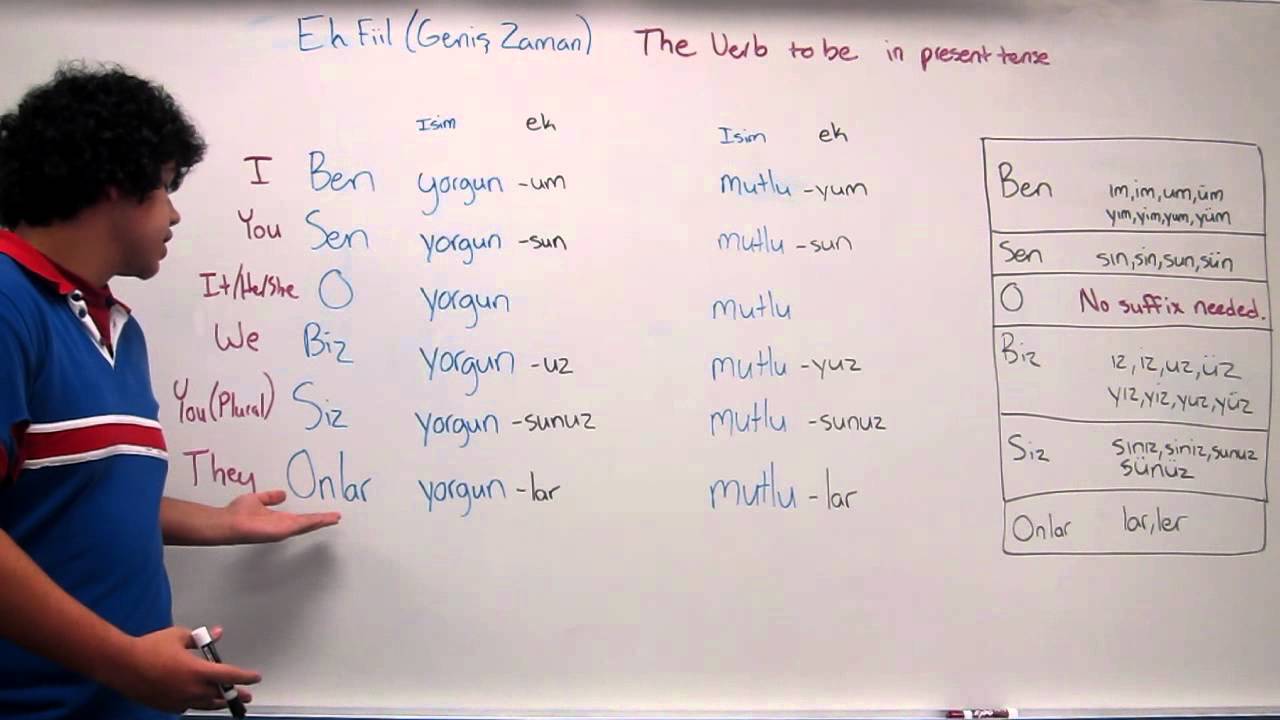 Ek Fiil (Geniş Zaman) The Verb to be in present tense
Isim ek Isim ek
I Ben yorgun -um mutlu -yum
You Sen yorgun -sun mutlu -sun
It/He/She O yorgun mutlu
We Biz yorgun -uz mutlu -yuz
You (Plural) Siz yorgun -sunuz mutlu -sunuz
They Onlar yorgun -lar mutlu -lar
Ben ım, im, um, üm
yım, yim, yum, yüm
Sen sın, sin, sun, sün
O No suffix needed.
Biz ız, iz, uz, üz
yız, yiz, yuz, yüz
Siz sınız, siniz, sunuz
sünüz
Onlar lar, ler